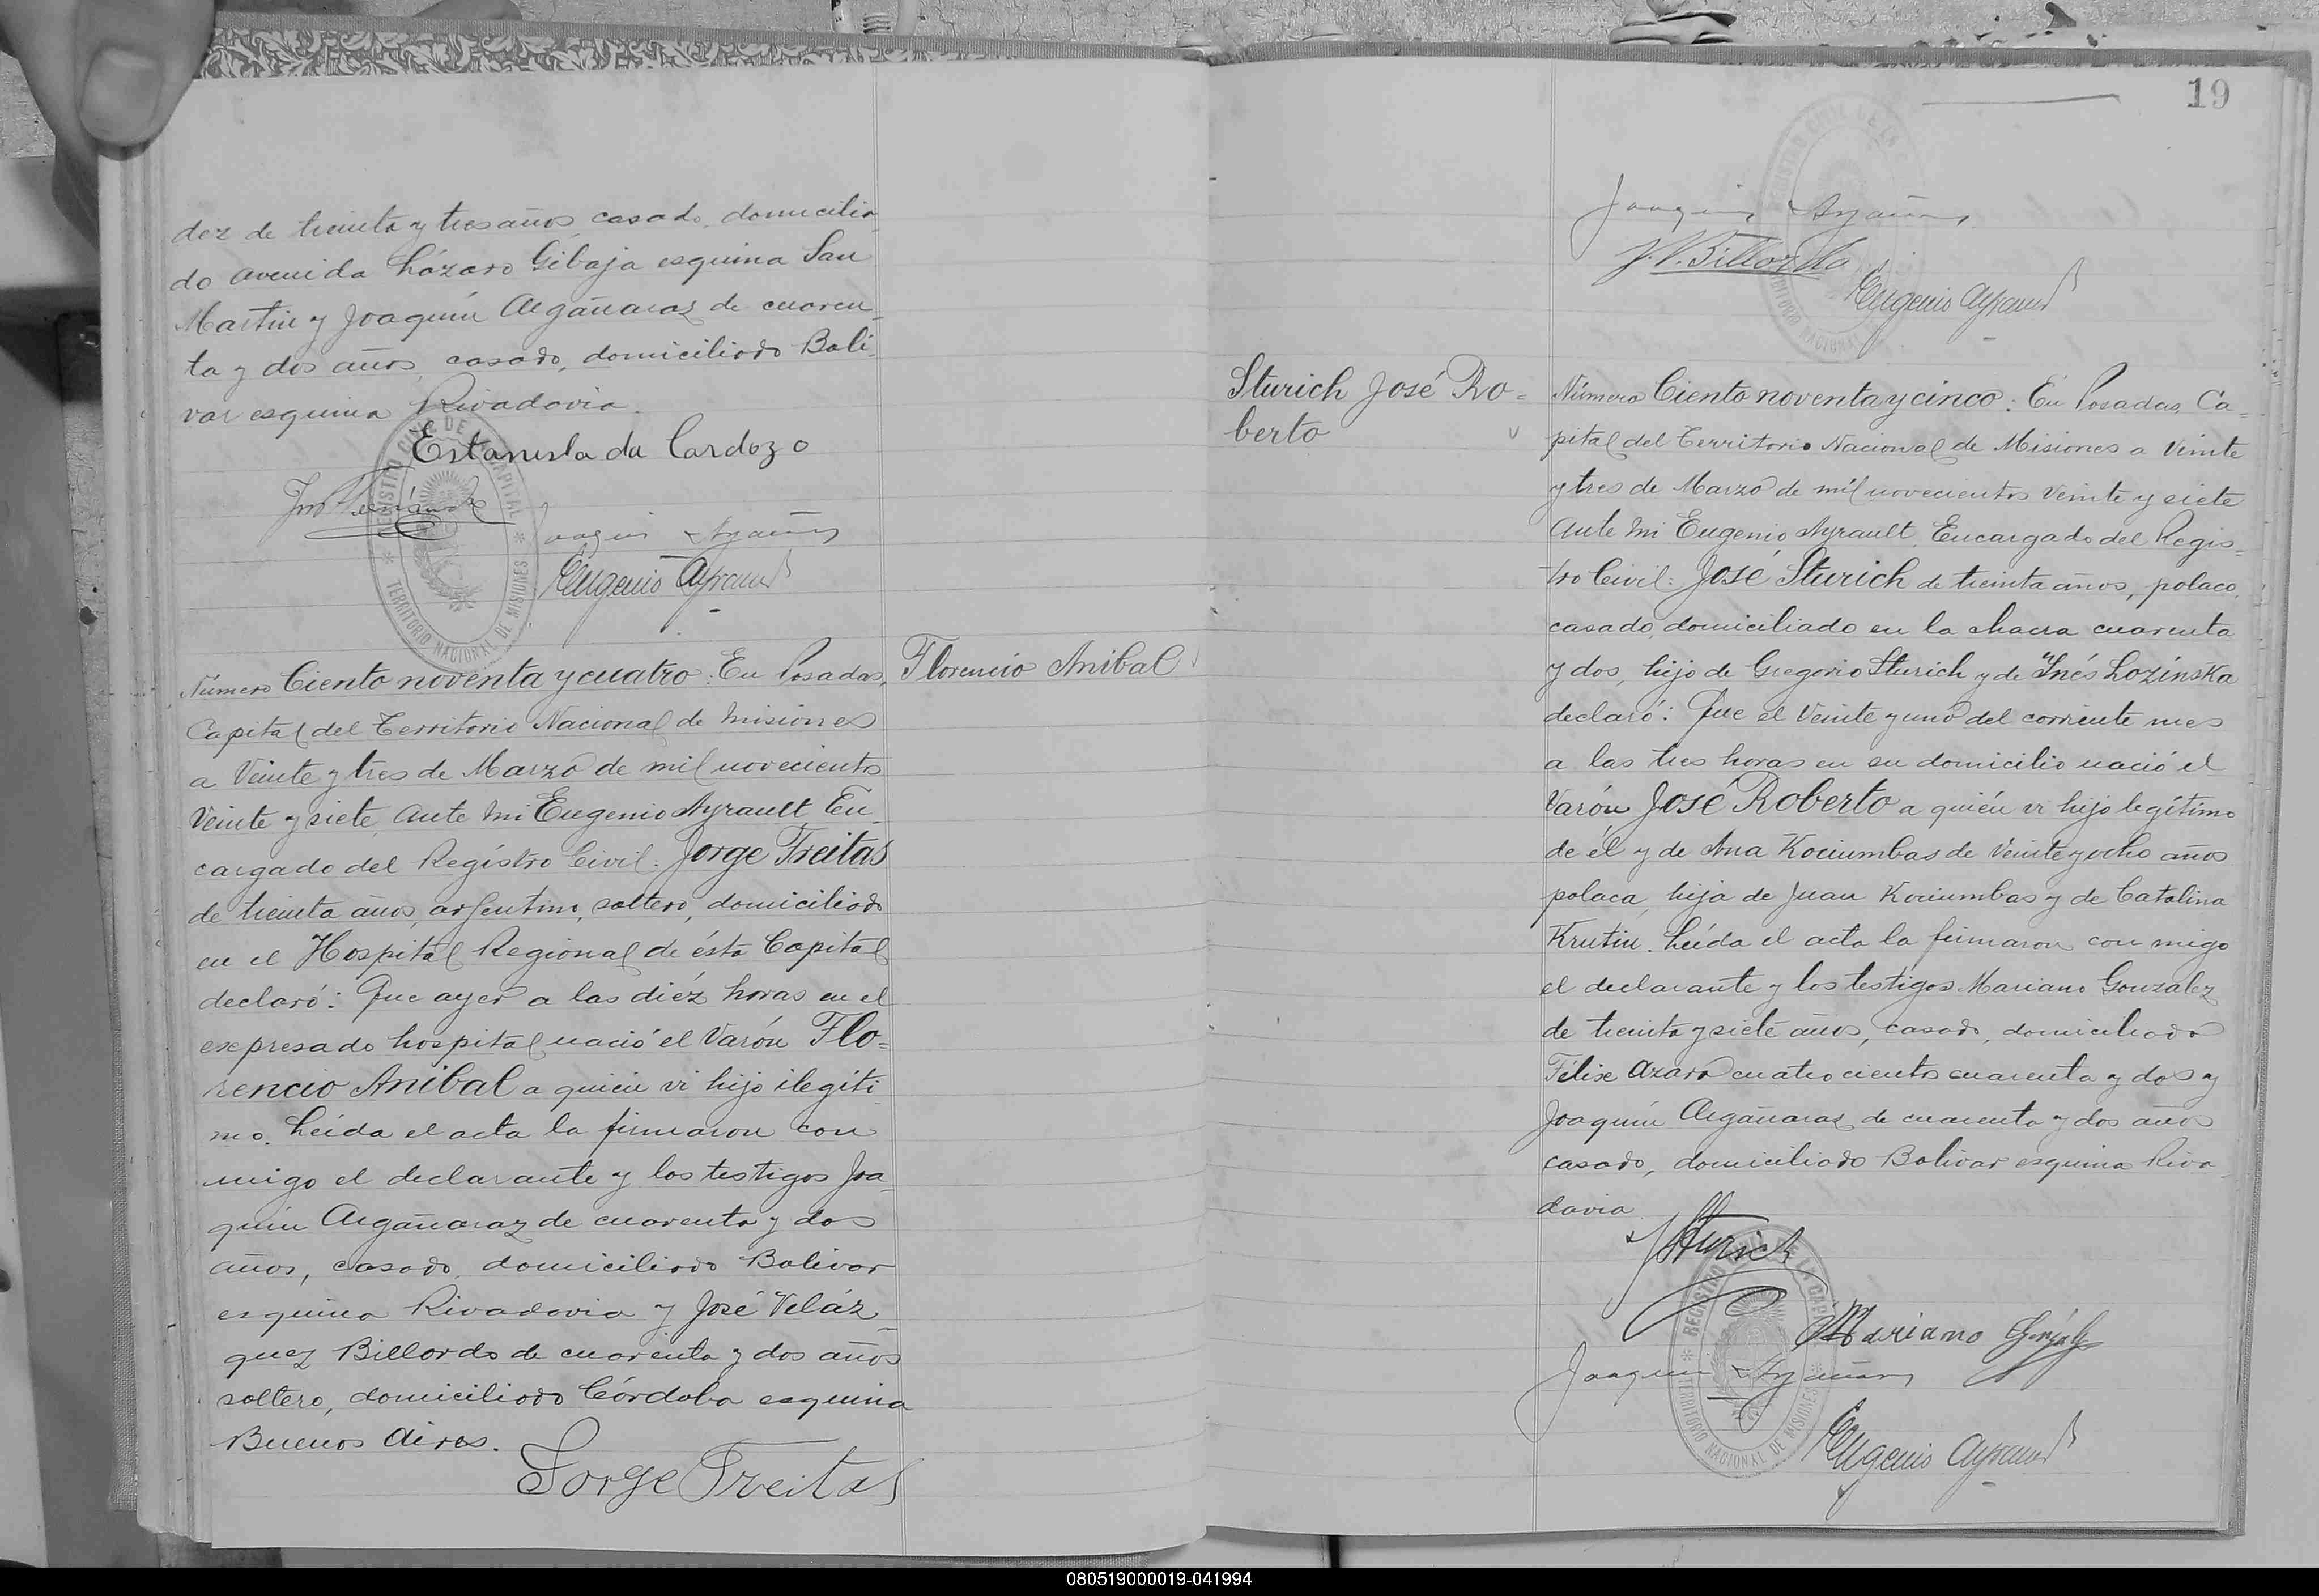 dez de treinta y tres años, casado, domicilia
do avenida Lázaro Gibaja esquina San
Martin y Joaquín Argañaraz de cuaren_
ta y dos años, casado, domiciliado Bolí_
var esquina Rivadavia.
Estanisla da Cardozo
Eugenio Ayrault
REGISTRO CIVIL DE LA CAPITAL
* TERRITORIO NACIONAL DE MISIONES *
Número Ciento noventa y cuatro: En Posadas,
Capital del Territorio Nacional de Misiones
a Veinte y tres de Marzo de mil novecientos
Veinte y siete, Ante mi Eugenio Ayrault, En_
cargado del Registro Civil: Jorge Freitas
de treinta años, argentino, soltero, domiciliado
en el Hospital Regional de ésta Capital
declaró: Que ayer a las diéz horas en el
expresado hospital nació el Varón Flo=
rencio Anibal a quien vi hijo ilegíti_
mo. Leída el acta la firmaron con
migo el declarante y los testigos Joa_
quín Argañaraz de cuarenta y dos
años, casado, domiciliado Bolivar
esquina Rivadavia y José Veláz_
quez Billordo de cuarenta y dos años
soltero, domiciliado Córdoba esquina
Buenos Aires.
Jorge Freitas
Florencio Anibal
19
J. V. Billordo
Eugenio Ayrault
Sturich José Ro=
berto
Número Ciento noventa y cinco: En Posadas, Ca=
pital del Territorio Nacional de Misiones a Veinte
y tres de Marzo de mil novecientos Veinte y siete
Ante mi Eugenio Ayrault, Encargado del Regis=
tro Civil: José Sturich de treinta años, polaco,
casado, domiciliado en la chacra cuarenta
y dos, hijo de Gregorio Sturich y de Inés Lozinska
declaró: Que el Veinte y uno del corriente mes
a las tres horas en su domicilio nació el
Varón José Roberto a quién vi hijo legítimo
de él y de Ana Kociumbas de Veinte y ocho años
polaca, hija de Juan Kociumbas y de Catalina
Krutin. Leída el acta la firmaron con migo
el declarante y los testigos Mariano Gonzalez
de treinta y siete años, casado, domiciliado
Félix Azara cuatrocientos cuarenta y dos y
Joaquín Argañaraz de cuarenta y dos años
casado, domiciliado Bolivar esquina Riva_
davia.
JSturich
Mariano González
Eugenio Ayrault
REGISTRO CIVIL DE LA CAPITAL
* TERRITORIO NACIONAL DE MISIONES *
080519000019-041994